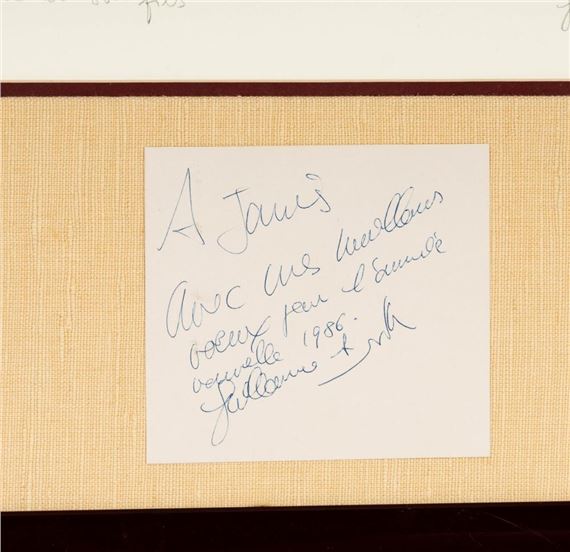 fils
A Janis
Avec mes meilleurs
voeux pour l'année
nouvelle 1986.
Guillaume